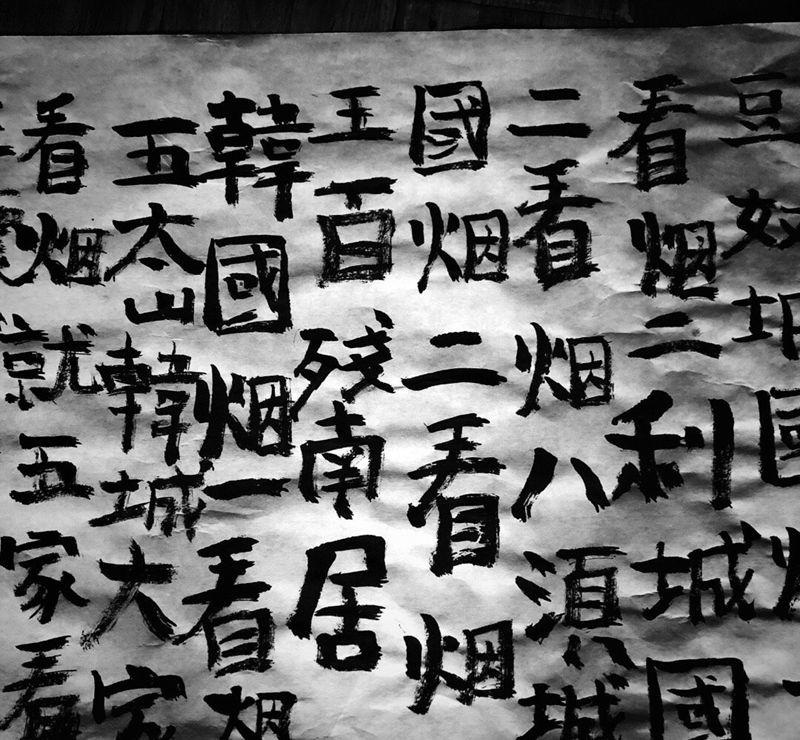 豆奴
看烟二利城國
二看烟八湏城
國烟二看烟
五百殘南居
韓國烟一看烟
五太山韓城大家
看烟就五家看